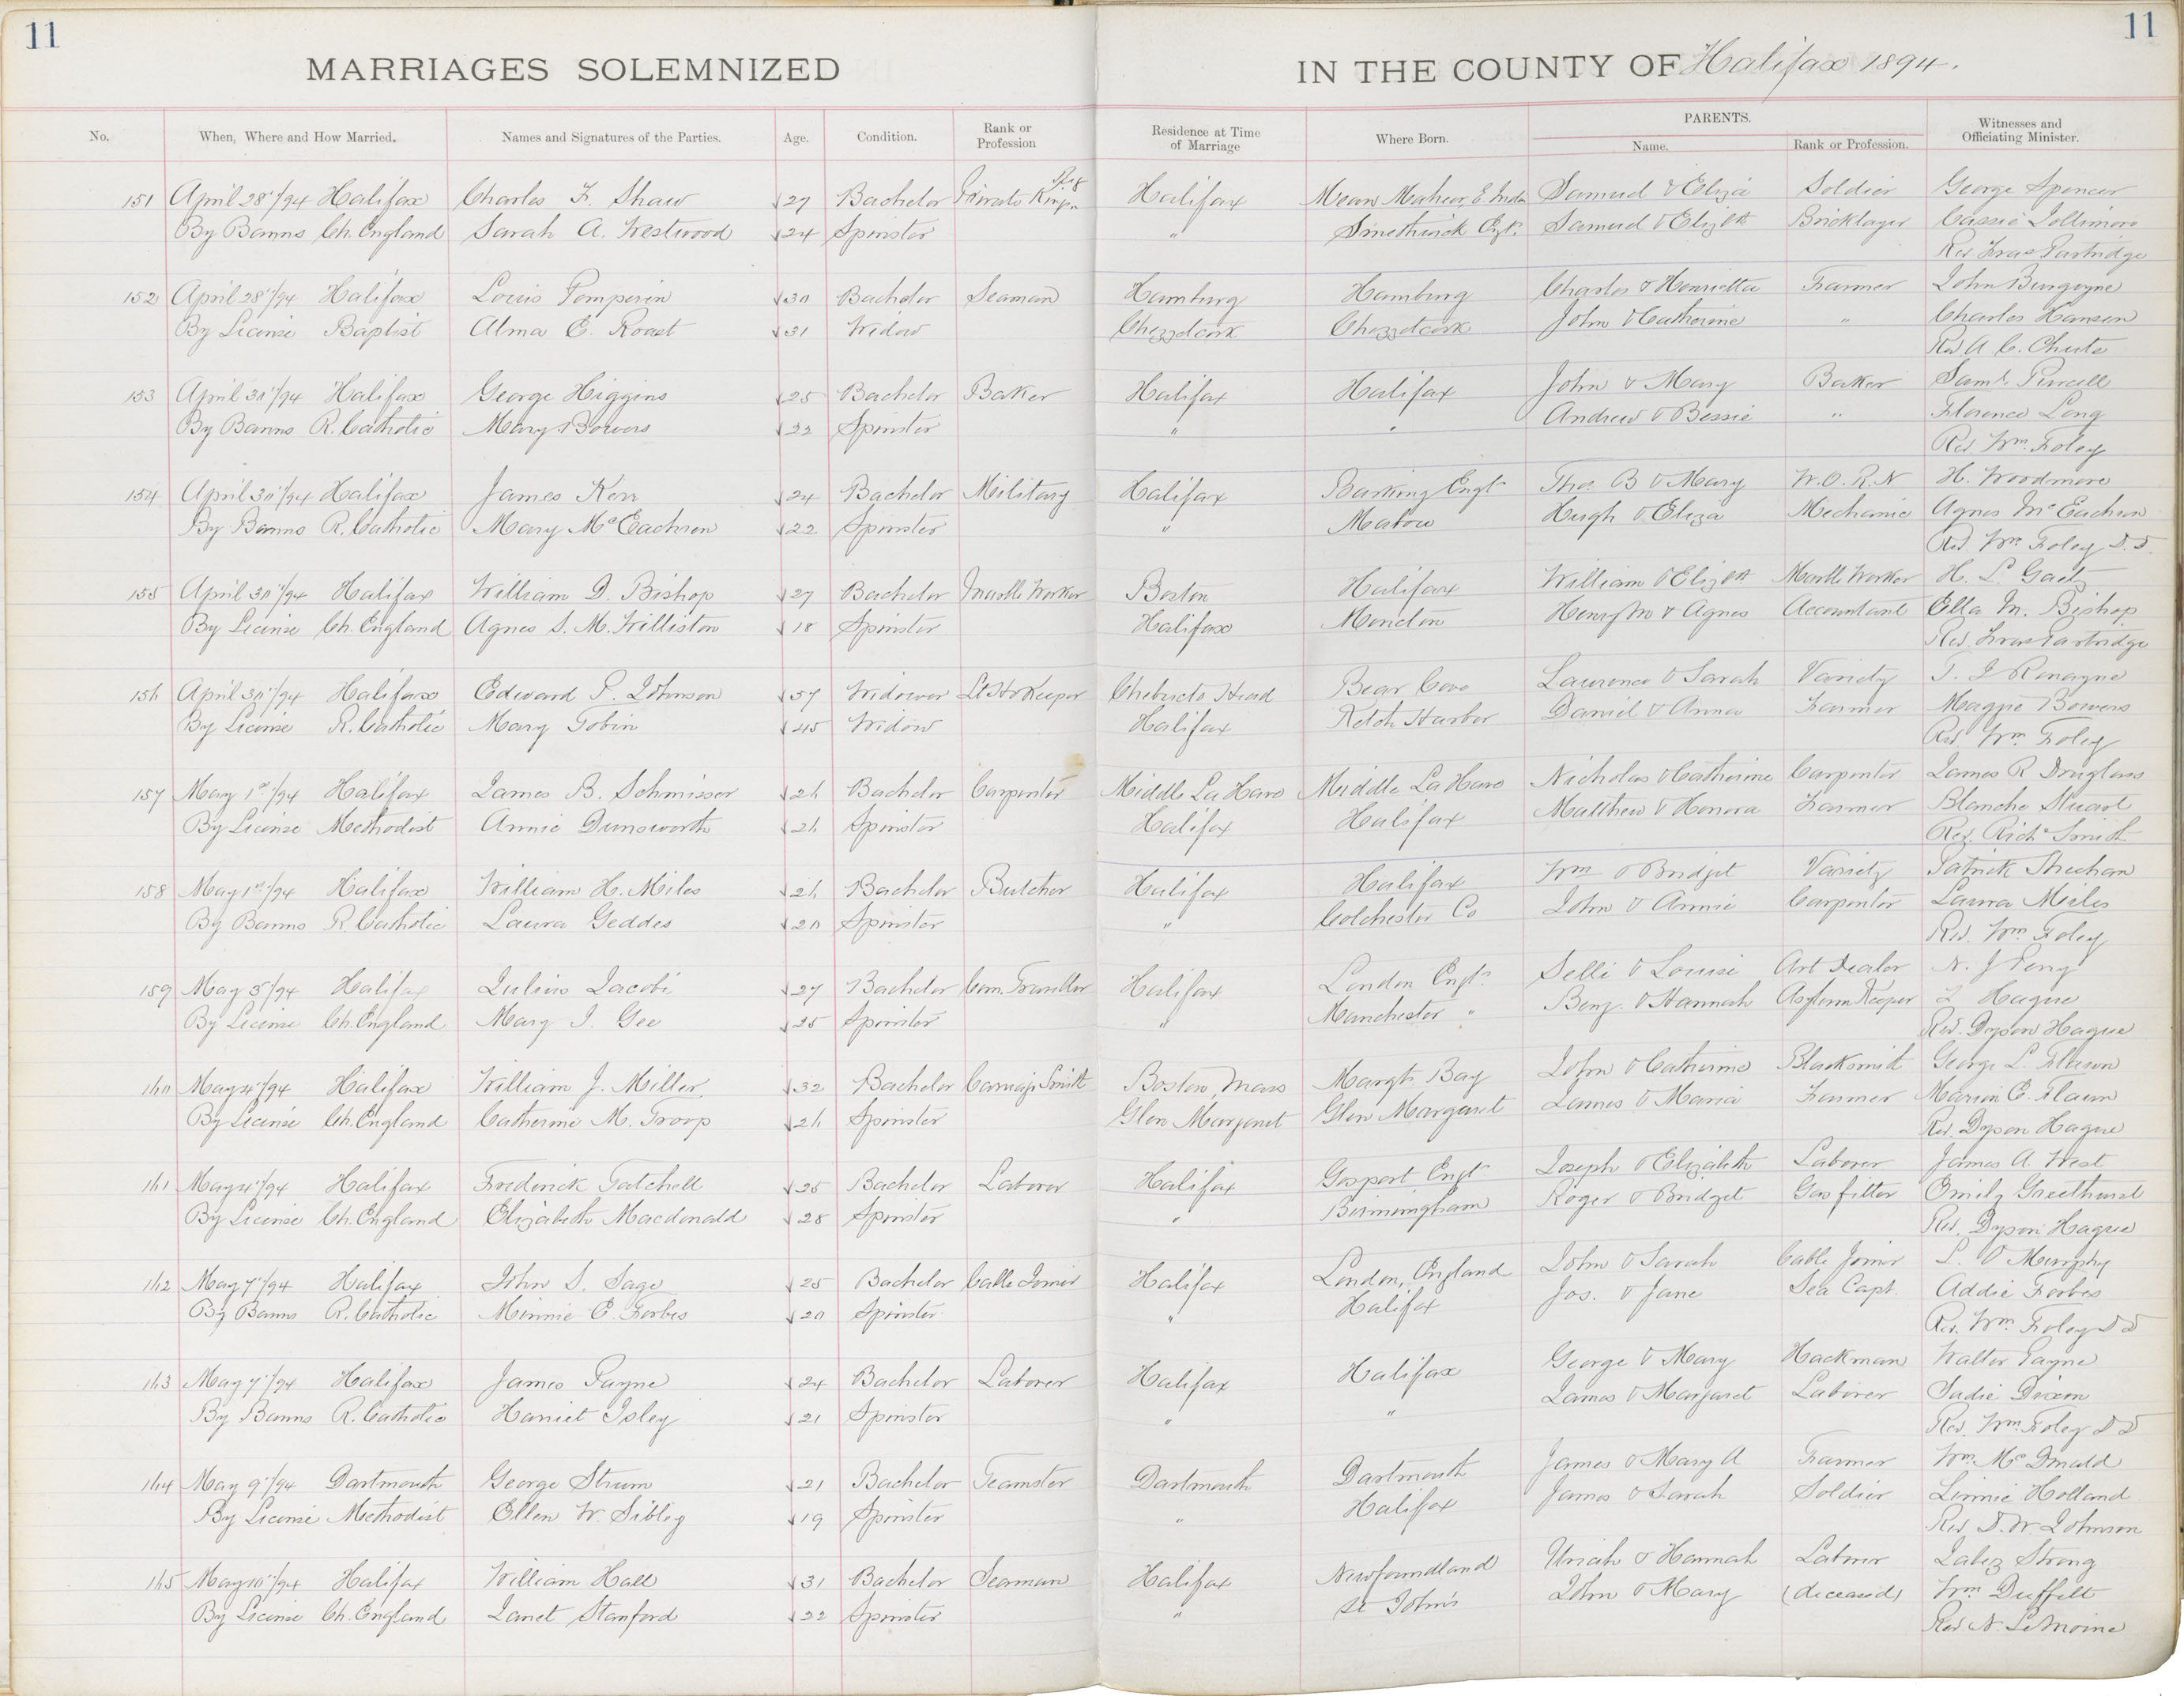 11
11
MARRIAGES SOLEMNIZED
IN THE COUNTY OF Halifax 1894.
No. When, Where and How Married. Names and Signatures of the Parties. Age. Condition. Rank or Profession Residence at Time of Marriage Where Born. PARENTS. Name. Rank or Profession. Witnesses and Officiating Minister.
151 April 28"/94 Halifax Charles F. Shaw 27 Bachelor Private Halifax Samuel & Eliza Soldier George Spencer
By Banns Ch. England Sarah A. Westwood 24 Spinster " Smethwick Engd. Samuel & Elizth Bricklayer Cassie
Rev Fras Partridge
152 April 28"/94 Halifax Louis 30 Bachelor Seaman Hamburg Hamburg Charles & Henrietta Farmer John Burgoyne
By License Baptist Alma E. Roast 31 Widow Chezzetcook Chezzetcook John & Catherine " Charles Hansen
Rev A. C. Chute
153 April 30"/94 Halifax George Higgins 25 Bachelor Baker Halifax Halifax John & Mary Baker Saml. Purcell
By Banns R. Catholic Mary Bowers 22 Spinster " " Andrew & Bessie " Florence Long
Rev Wm. Foley
154 April 30"/94 Halifax James Kerr 24 Bachelor Military Halifax Barking Engd. Thos. B & Mary W.O. R.N H. Woodmore
By Banns R. Catholic Mary McEachren 22 Spinster " Mabou Hugh & Eliza Mechanic Agnes McEachren
Rev. Wm. Foley D.D.
155 April 30"/94 Halifax William D. Bishop 27 Bachelor Marble Worker Boston Halifax William & Elizth Marble Worker H. L. Gaetz
By License Ch. England Agnes S. M. Williston 18 Spinster Halifax Moncton Agnes Accountant Ella M. Bishop
Rev. Fras Partridge
156 April 30"/94 Halifax Edward P. Johnson 57 Widower Lt Ho Keeper Chebucto Head Bear Cove Laurence & Sarah Variety
By License R. Catholic Mary Tobin 45 Widow Halifax Ketch Harbor Daniel & Anna Farmer Maggie Bowers
Rev. Wm. Foley
157 May 1st/94 Halifax James B. Schmisser 26 Bachelor Carpenter Middle La Have Middle La Have Nicholas & Catherine Carpenter James R Douglass
By License Methodist Annie Dunsworth 26 Spinster Halifax Halifax Matthew & Honora Farmer Blanche Stuart
Rev. Richd Smith
158 May 1st/94 Halifax William H. Miles 26 Bachelor Butcher Halifax Halifax Wm & Bridget Variety Patrick Sheehan
By Banns R. Catholic Laura Geddes 20 Spinster " Colchester Co John & Annie Carpenter Laura Miles
Rev. Wm. Foley
159 May 3"/94 Halifax Julius Jacobi 27 Bachelor Com. Traveller Halifax London Engd. Selli & Louise Art Dealer N. J Perry
By License Ch. England Mary J. Gee 25 Spinster " Manchester " Benj. & Hannah Asylum Keeper Hague
Rev. Dyson Hague
160 May 4"/94 Halifax William J. Miller 32 Bachelor Carriage Smith Boston, Mass Margts Bay John & Catherine Blacksmith George L. Flawn
By License Ch. England Catherine M. Troop 26 Spinster Glen Margaret Glen Margaret James & Maria Farmer Marion E. Flawn
Rev. Dyson Hague
161 May 4"/94 Halifax Frederick Tatchell 25 Bachelor Laborer Halifax Gosport Engd Joseph & Elizabeth Laborer James A. West
By License Ch. England Elizabeth Macdonald 28 Spinster " Birmingham Roger & Bridget Gas fitter Emily Greethurst
Rev. Dyson Hague
162 May 7"/94 Halifax John S. Sage 25 Bachelor Cable Joiner Halifax London, England John & Sarah Cable Joiner Murphy
By Banns R. Catholic Minnie E. Forbes 20 Spinster " Halifax Jos. & Jane Sea Capt. Addie Forbes
Rev. Wm. Foley DD
163 May 7"/94 Halifax James Payne 24 Bachelor Laborer Halifax Halifax George & Mary Hackman Walter Payne
By Banns R. Catholic Harriet Isley 21 Spinster " " James & Margaret Laborer Sadie Dixon
Rev. Wm. Foley DD
164 May 9"/94 Dartmouth George Strum 21 Bachelor Teamster Dartmouth Dartmouth James & Mary A Farmer Wm. McDonald
By License Methodist Ellen W. Sibley 19 Spinster " Halifax James & Sarah Soldier Linnie Holland
Rev. D. W. Johnson
165 May 10"/94 Halifax William Hall 31 Bachelor Seaman Halifax Newfoundland Uriah & Hannah Laborer Jabez Strong
By License Ch. England Janet Stanford 22 Spinster " St John's John & Mary (deceased) Wm. Duffett
Rev. N. LeMoine